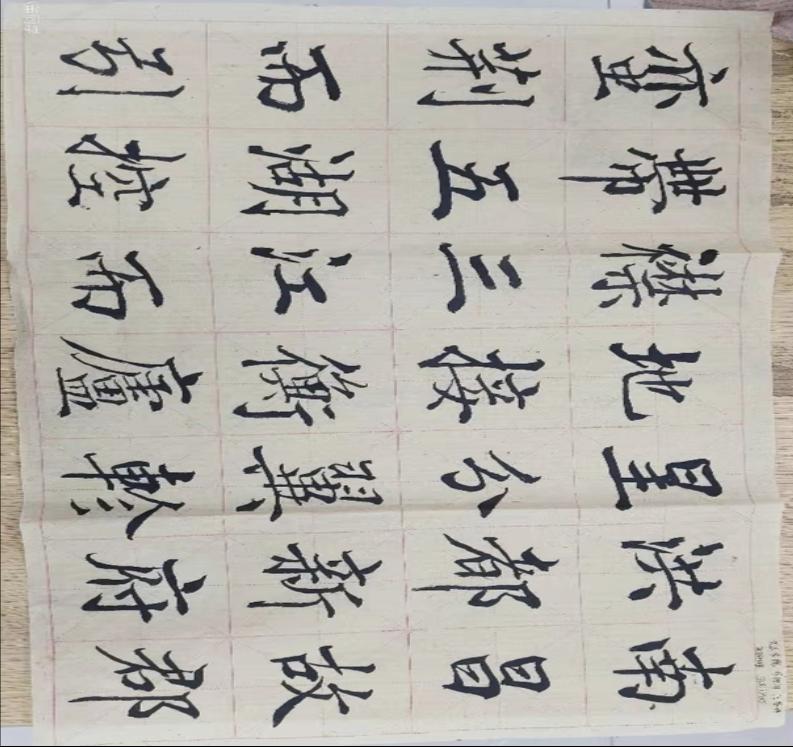 南昌故郡
洪都新府
星分翼軫
地接衡廬
襟三江而
帶五湖控
蛮荆而引